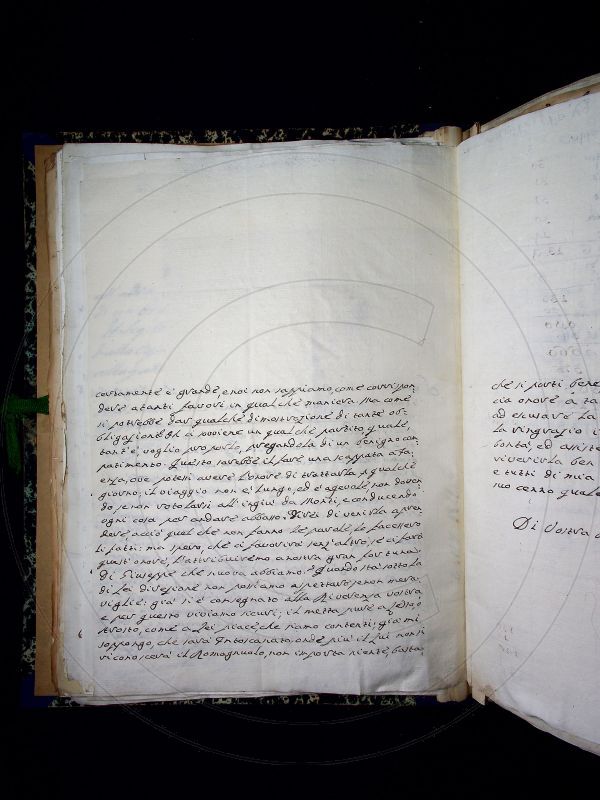 certamente è grande, e noi non sappiamo, come corrispon-
dere a tanti favori in qualche maniera. Ma come
si potrebbe dar qualche dimostrazione di tante ob-
bligazioni? a porsene un qualche partito quale,
tant'è, voglio proporlo, pregandola di un benigno com-
patimento. Questo sarebbe il fare una scappata a Fa-
enza, ove potessi avere l'onore di trattarla p qualche
giorno, il viaggio non è lungo, ed è agevole non doven-
do, se non rotolarsi all'ingiù da Monti, e conducendo
ogni cosa per andare abbasso. Direi di venirla a pren-
dere, acciò quel che non fanno le parole, lo facessero
li fatti: ma spero, che ci favorirà senz'altro, se ci farà
questo onore, l'attribuiremo a nostra gran fortuna.
Di Giuseppe che nuova abbiamo? Quando sta sotto la
di Lei direzione non possiamo aspettare, se non mera-
viglie: già si è consegnato alla Riverenza Vostra
e per questo viviamo sicuri; il metta pure a lesso, o
arosto, come a Lei piace, che siamo contenti; già mi
soppongo, che sarà Intoscanato, onde più il qui non si
riconoscerà il Romagnuolo, non importa niente, basta
che si porti bene
cia onore a ta
ad
la ringrazio
bontà, ed assiste
riverirla ben
e tutti di mia
suo cenno quale
Di Vostra